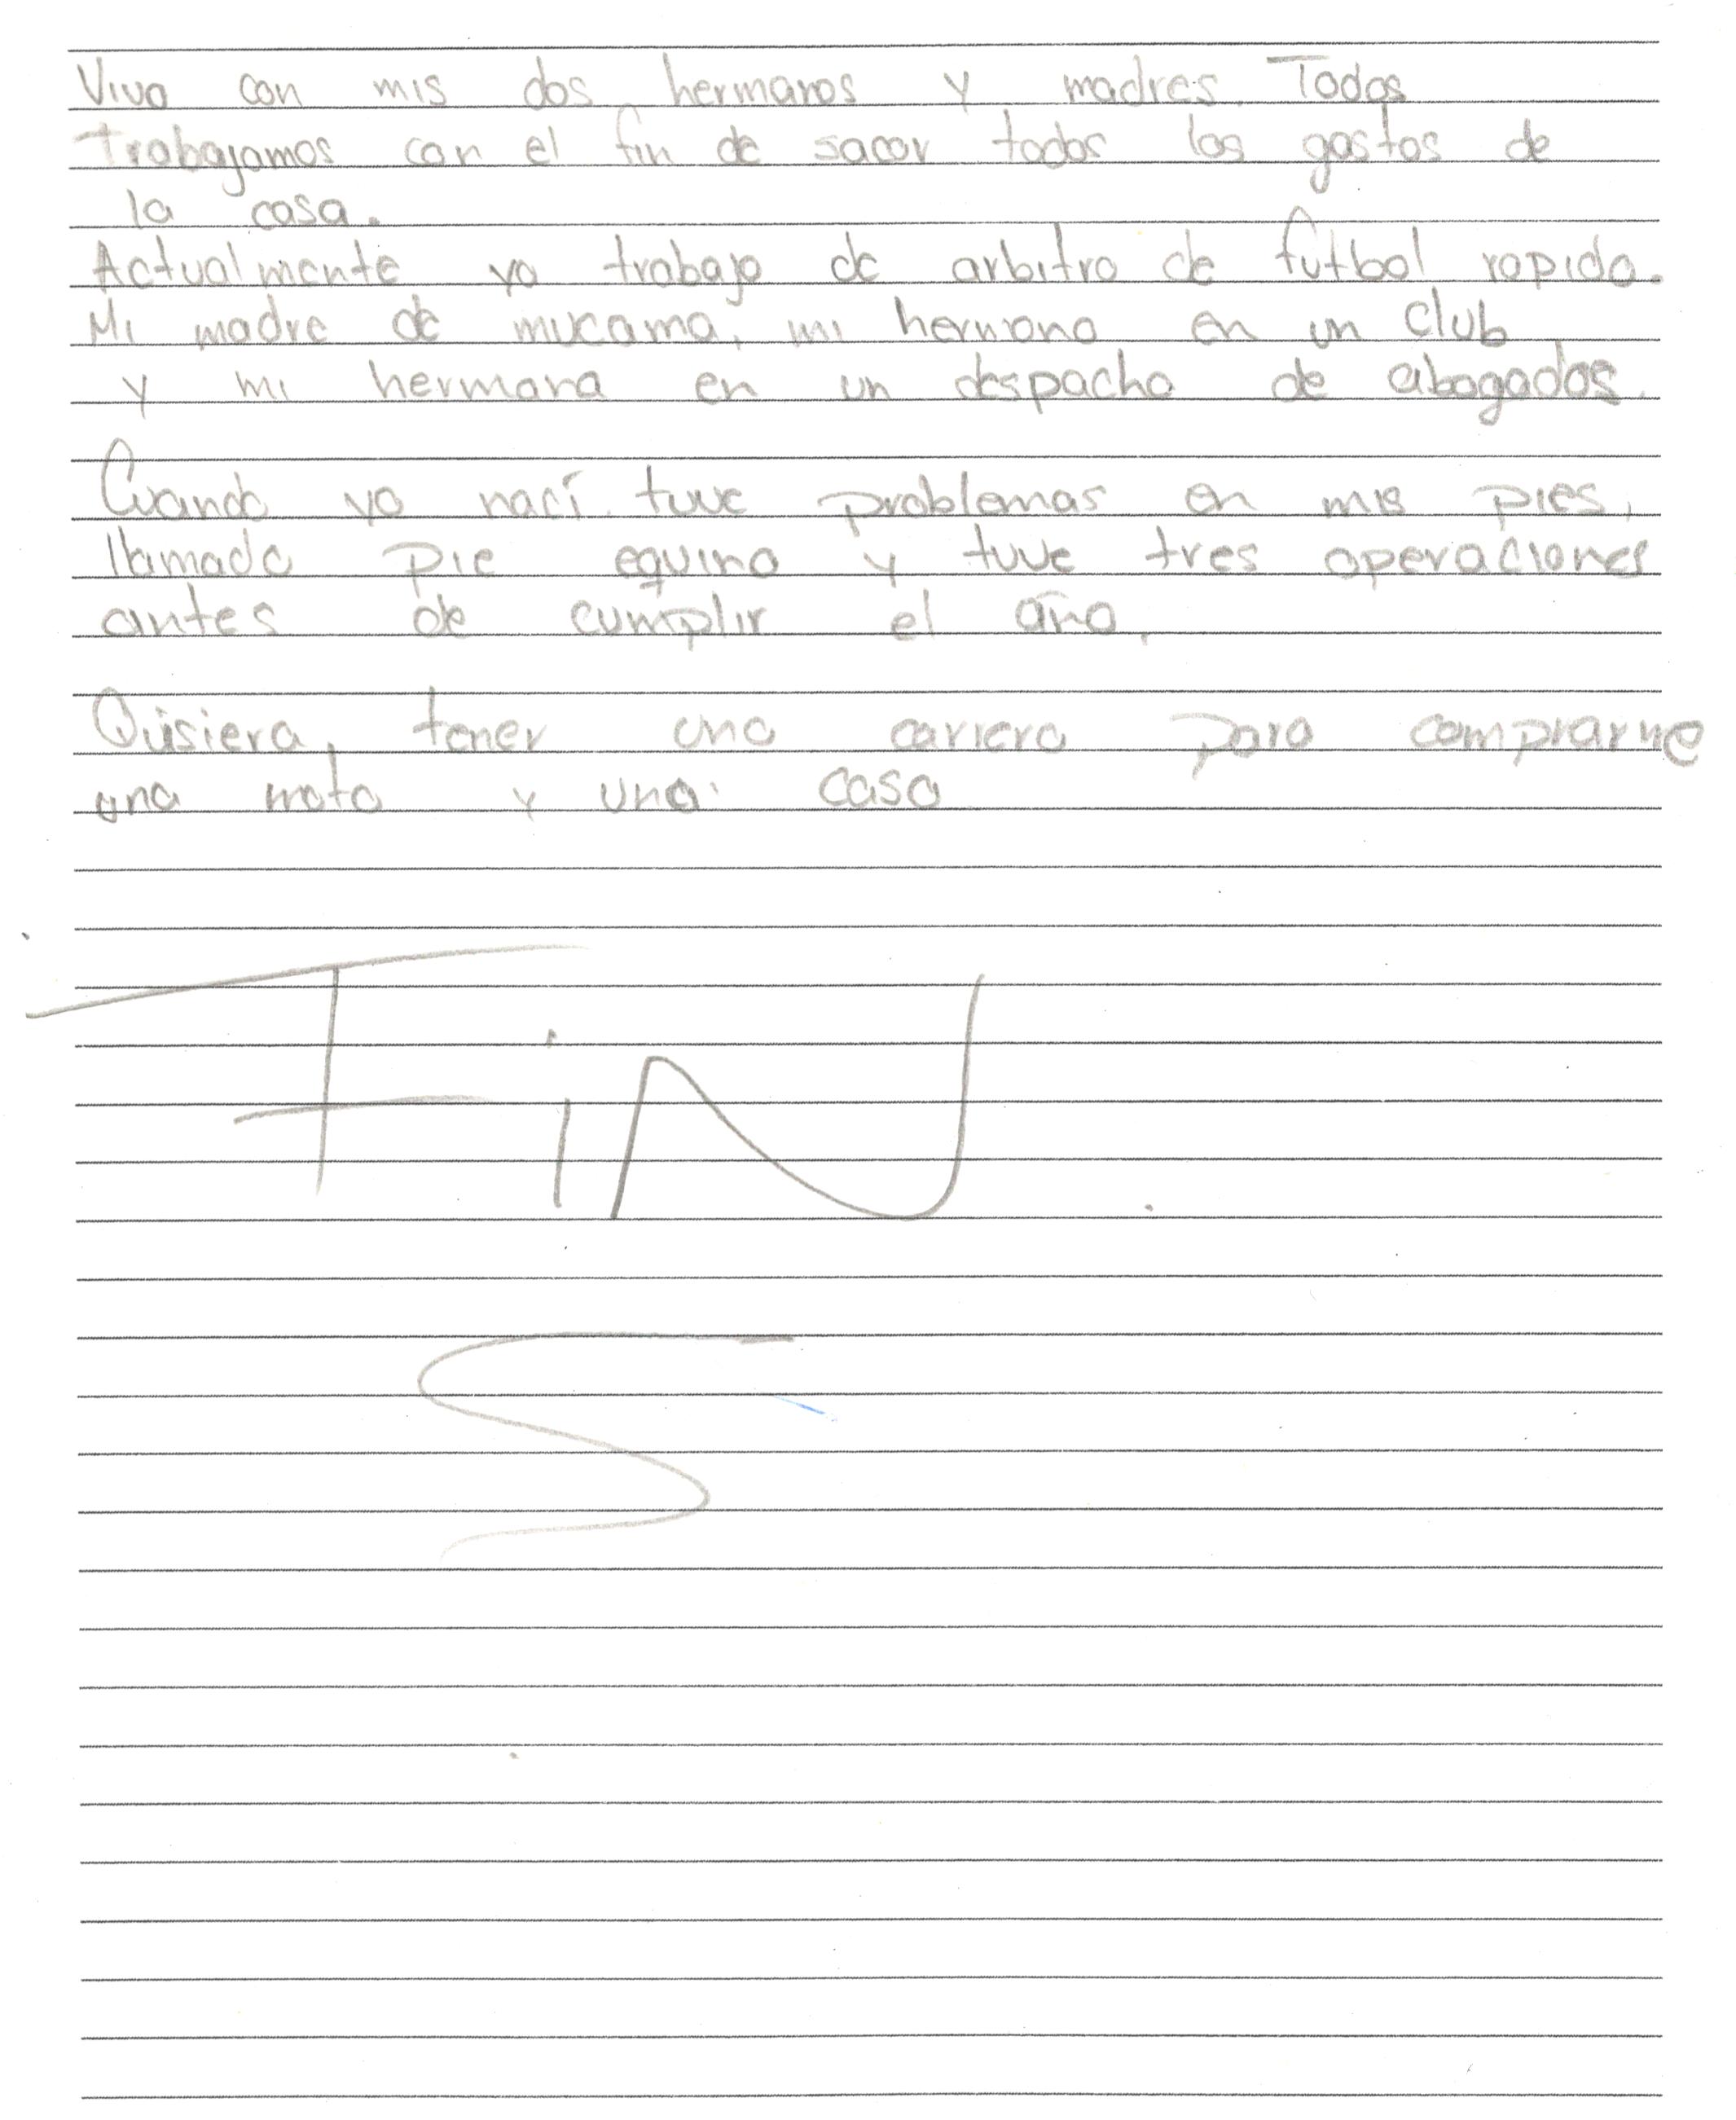 Vivo con mis dos hermanos y madres. Todos
trabajamos con el fin de sacar todos los gastos de
la casa.
Actualmente yo trabajo de arbitro de futbol rapido.
Mi madre de mucama, mi hermano en un club
y mi hermana en un despacho de abogados.
Cuando yo nací tuve problemas en mis pies,
llamado pie equino y tuve tres operaciones
antes de cumplir el año.
Quisiera, tener una carrera para comprarme
una moto y una casa
FiN
S